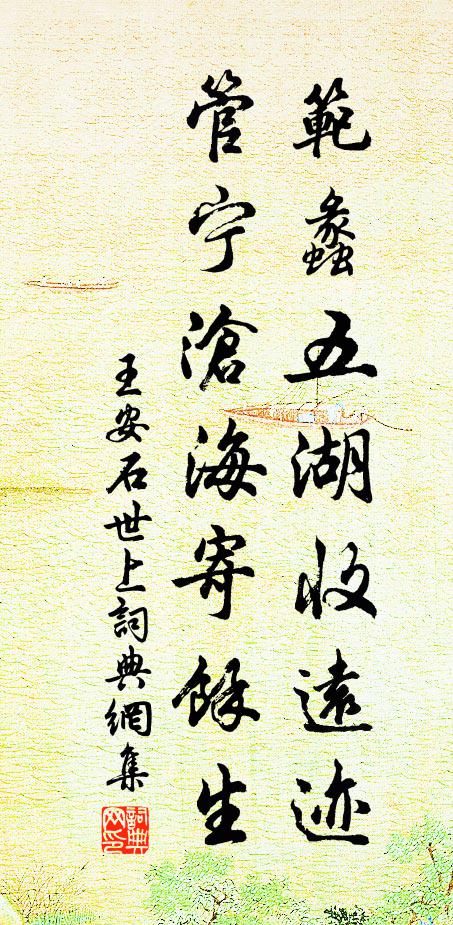 範蠡五湖收遠迹
管宁滄海寄餘生
王安石世上詞典網集
詞典网印